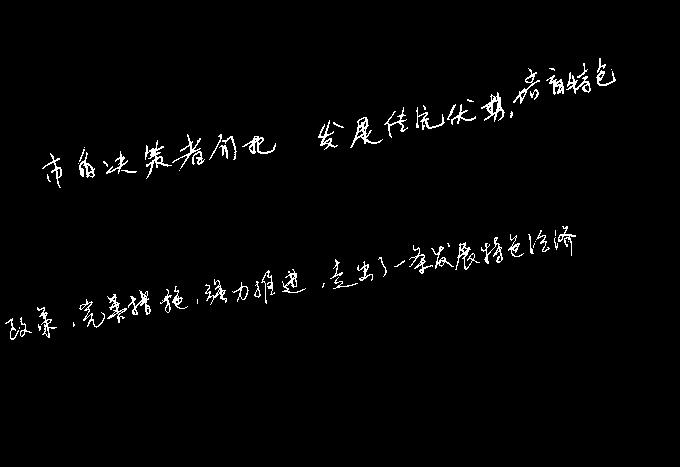 市的决策者们把 发展传统优势,培育特色
政策,完善措施,强力推进,走出了一条发展特色经济